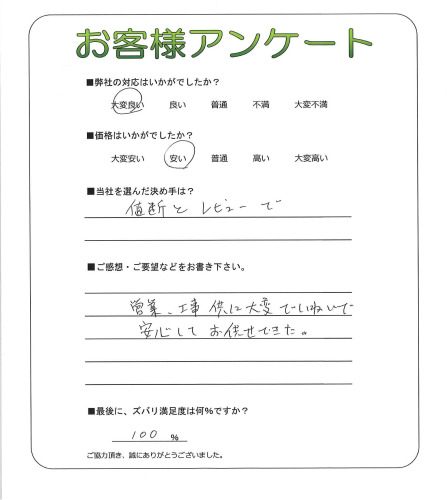 お客様アンケート
■弊社の対応はいかがでしたか？
大変良い 良い 普通 不満 大変不満
■価格はいかがでしたか？
大変安い 安い 普通 高い 大変高い
■当社を選んだ決め手は？
値断と レビューで
■ご感想・ご要望などをお書き下さい。
営業、工事 供に大変ていねいで
安心して お供せできた。
■最後に、ズバリ満足度は何％ですか？
100 %
ご協力頂き、誠にありがとうございました。